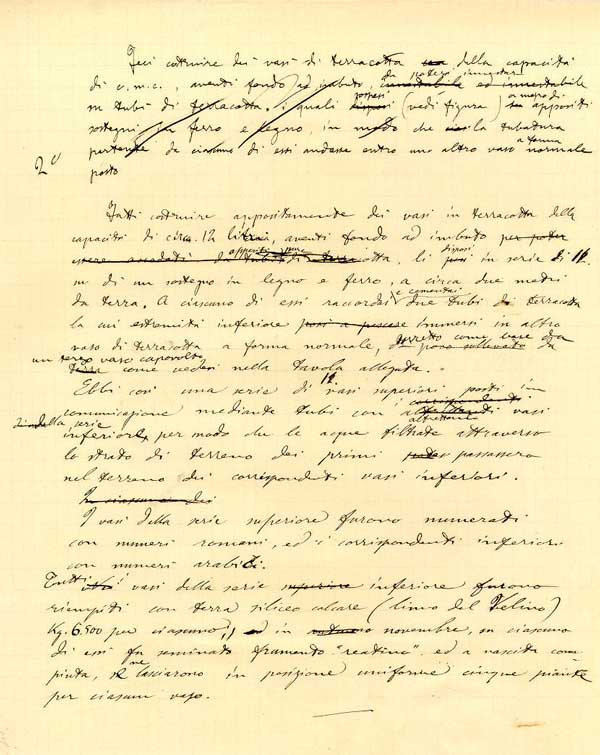 Feci costruire dei vasi di terracotta della capacità
di c.m.c., aventi fondo ad imbuto, da potere innestar
innestabile ed innestabile
su tubi di terracotta, i quali sospesi (vedi figura) a mezzo di appositi
sostegni in ferro e legno, in modo che la tubatura
partente da ciascuno di essi andasse entro uno altro vaso a forma normale
posto
2°
Fatti costruire appositamente dei vasi in terracotta della
capacità di circa 12 litri, aventi fondo ad imbuto per poter
essere di tubi di terracotta, li disposi in serie di 12
su di un sostegno in legno e ferro, a circa due metri
da terra. A ciascuno di essi raccordai e cementai due tubi di terracotta
la cui estremità inferiore immersi in altro
vaso di terracotta a forma normale, sorretto come base da
un terzo vaso capovolto
come vedesi nella tavola allegata.
Ebbi così una serie di 12 vasi superiori posti in
comunicazione mediante tubi con i corrispondenti
altrettanti vasi
della serie
inferiore, per modo che le acque filtrate attraverso
lo strato di terreno dei primi passassero
nel terreno dei corrispondenti vasi inferiori.
In ciascuno dei
I vasi della serie superiore furono numerati
con numeri romani, ed i corrispondenti inferiori
con numeri arabici.
Tutti i vasi della serie superiore inferiore furono
riempiti con terra siliceo calcare (limo del Velino)
Kg. 6.500 per ciascuno, ed in novembre, in ciascuno
di essi fu seminato frumento "reatino" ed a nascita com=
piuta, se ne lasciarono in posizione uniforme cinque piante
per ciascun vaso.